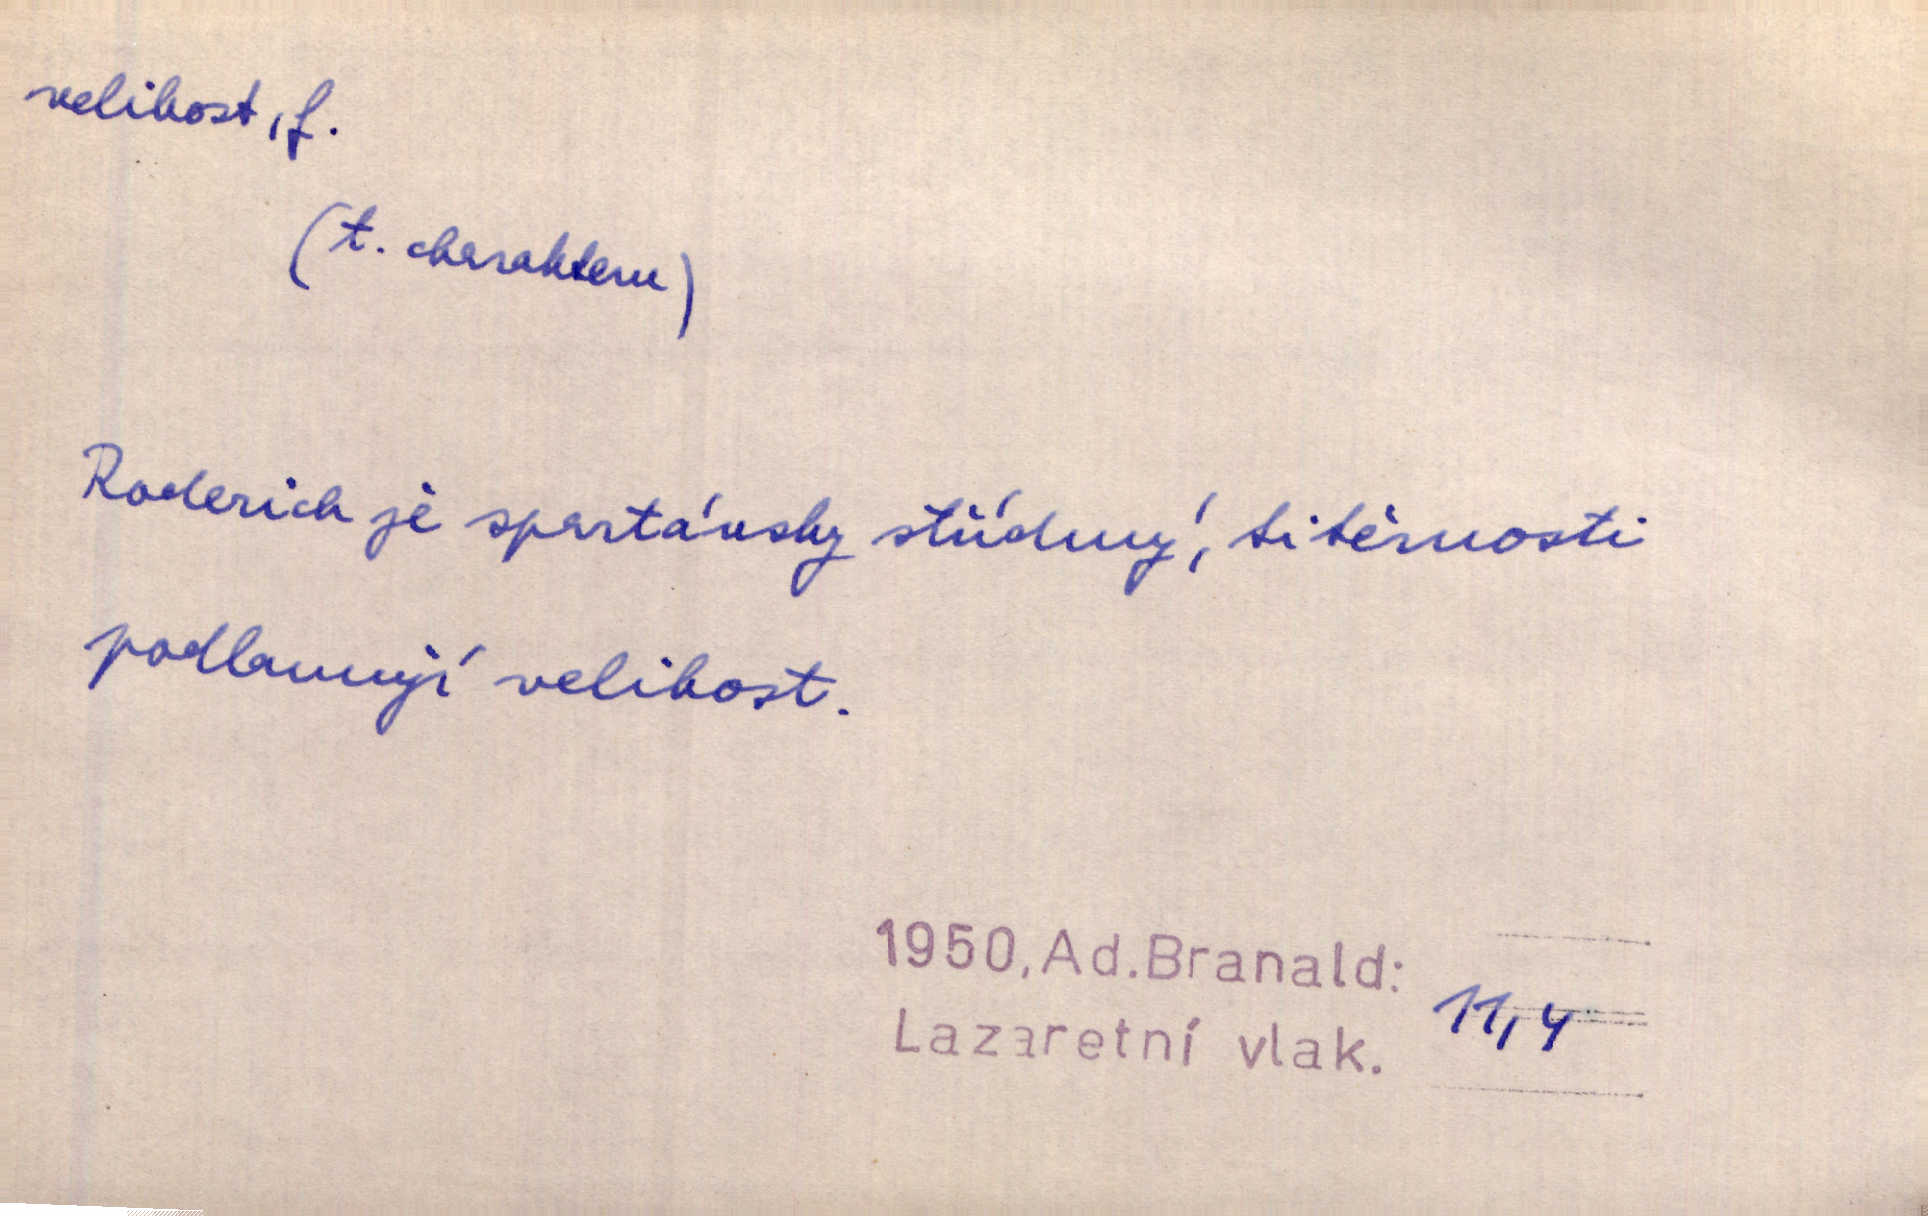 velikost, f.
(t. charakteru)
Roderich je spartánsky střídmý, titěrnosti
podlamují velikost.
1950, Ad. Branald:
Lazaretní vlak.
11, 4